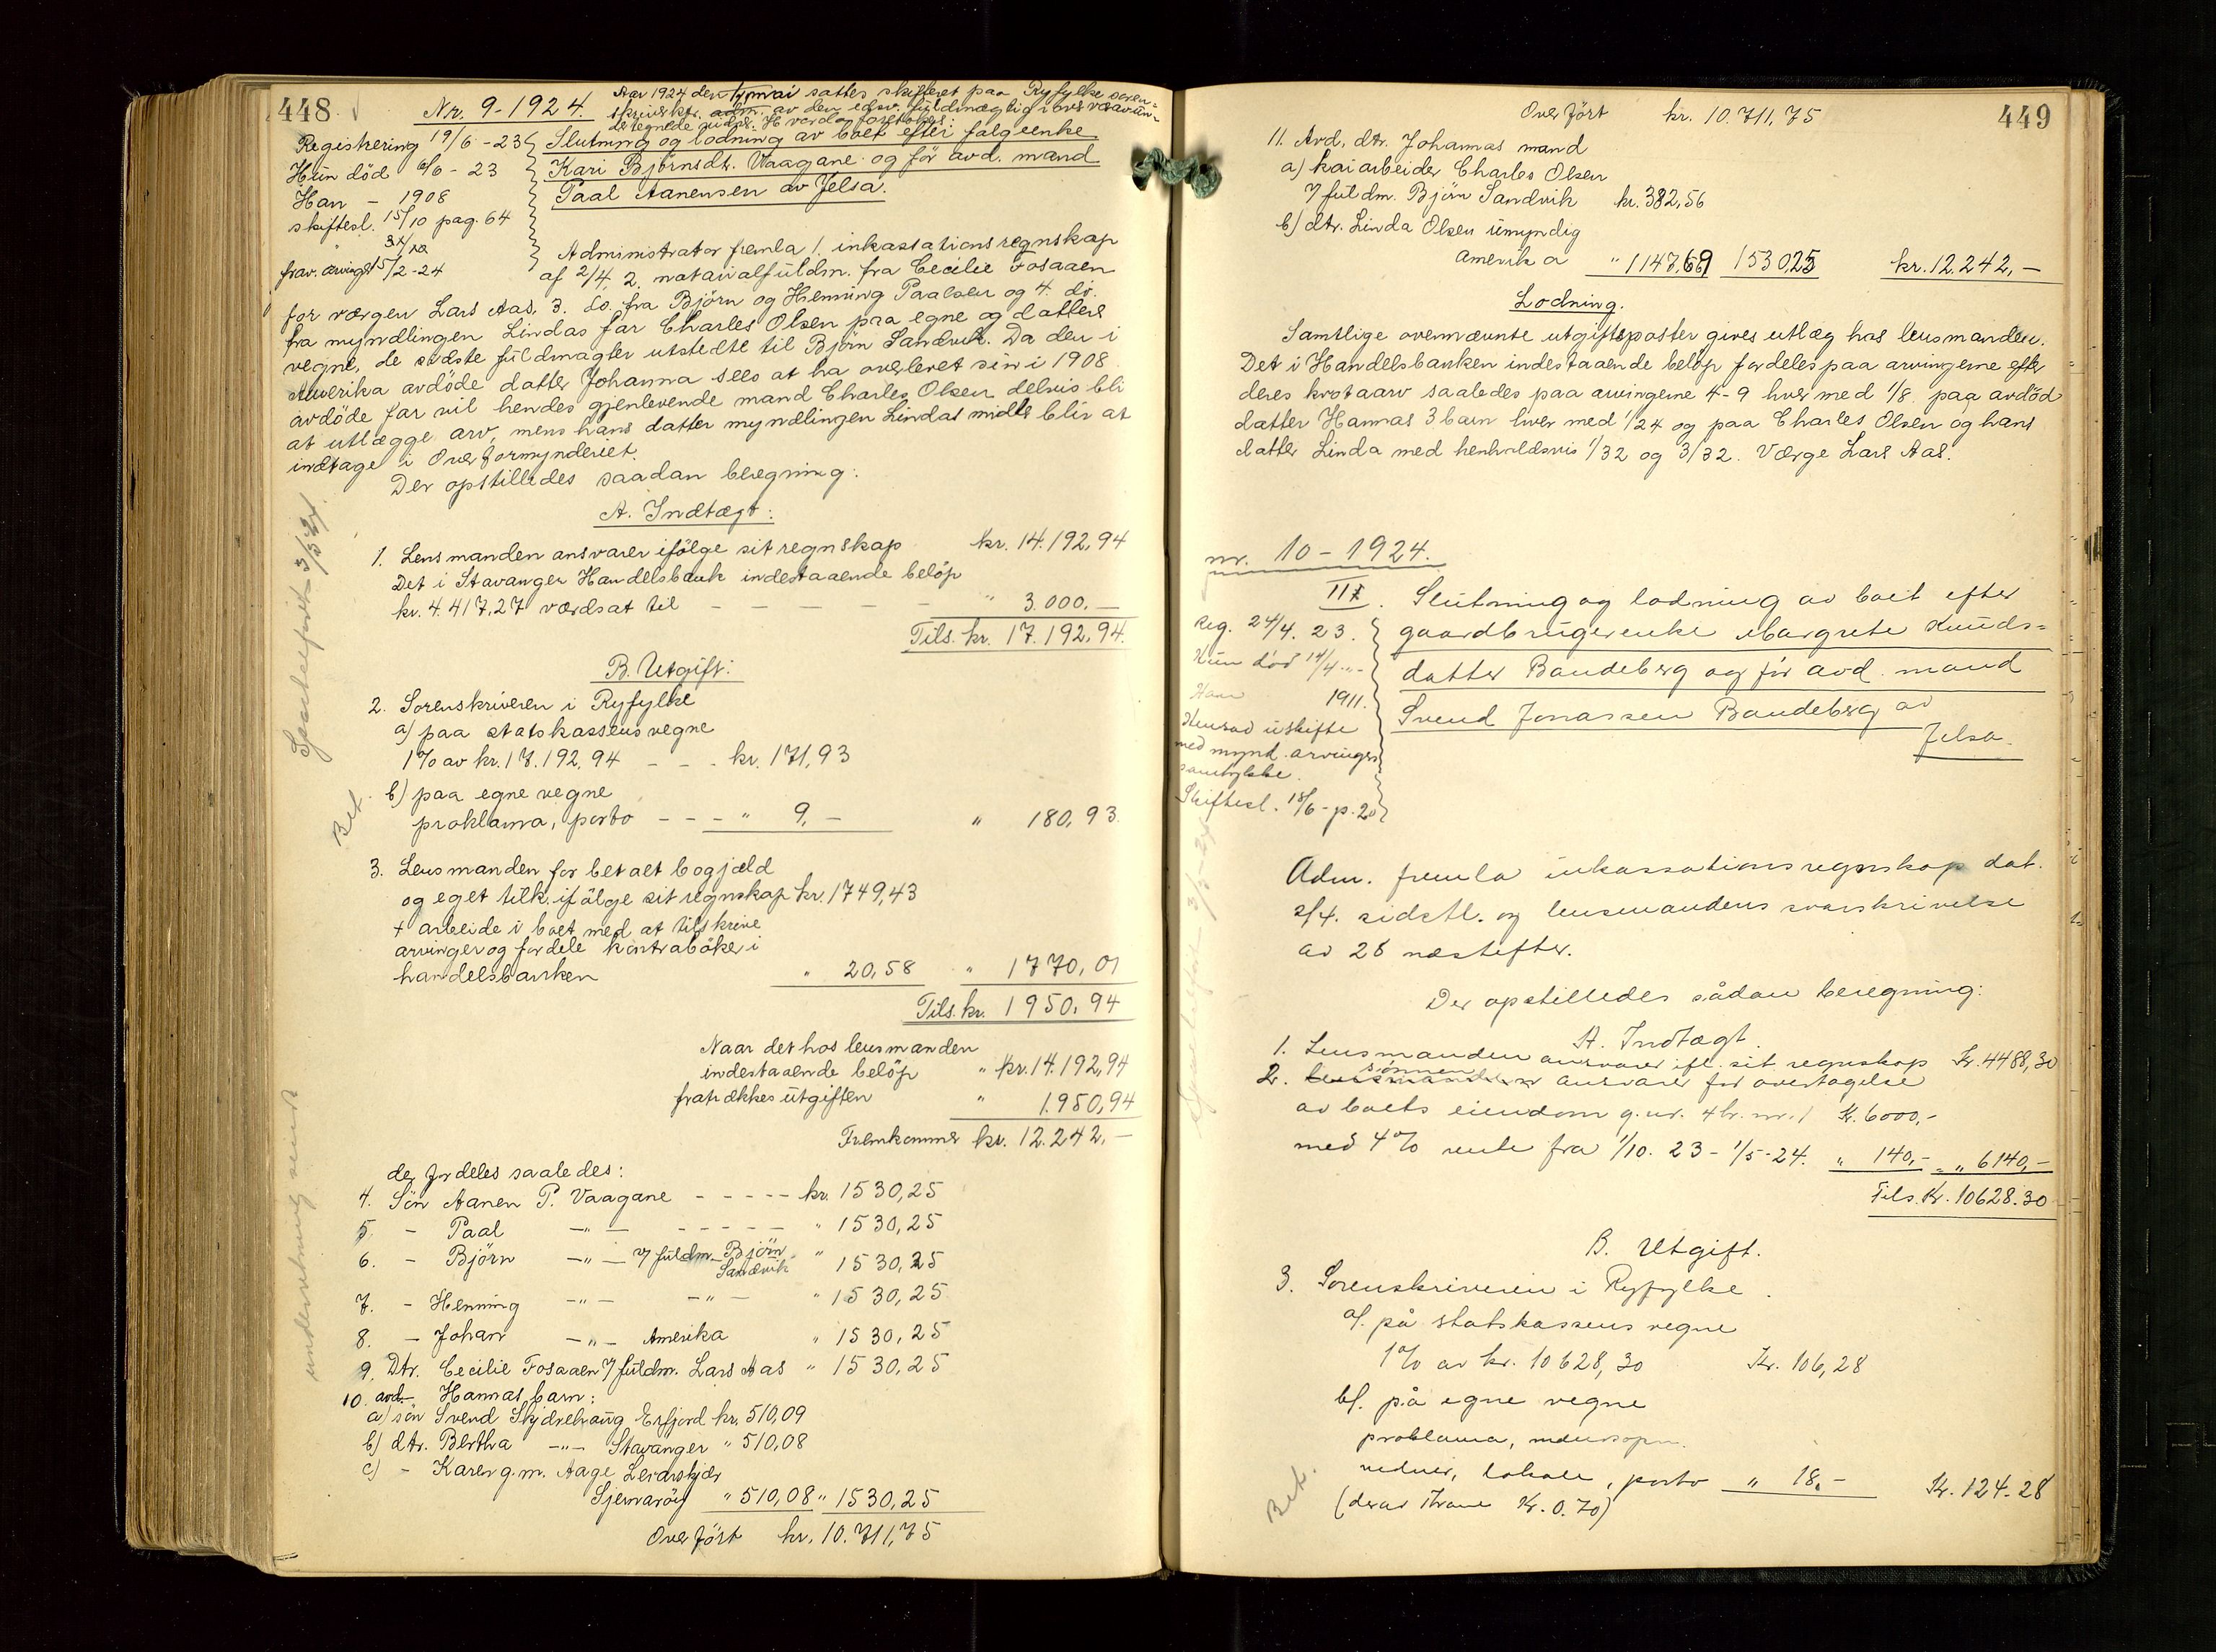 448
Nr. 9-1924.
Aar 1924 den 1 mai sattes skifteret paa Ryfylke soren=
skriverktr. adm. av den edsv. fuldmægtig i
Slutning og lodning av boet efter følgeenke
Kari Björnsdtr. Vaagane og för avd. mand
Paal Aanensen av Jelsa.
Registrering 19/6 - 23
Hun död 6/6 - 23
Han - 1908
skiftesl. 15/10 pag. 64
frav. arvinger 15/2 - 24
Administrator fremla 1. inkassationsregnskap
af 2/4, 2. notarialfuldm. fra Cecilie Fosaaen
for værgen Lars Aas, 3. do. fra Björn og Henning Paalsen og 4. do.
fra myndlingen Lindas far Charles Olsen paa egne og datters
vegne, de sidste fuldmagter utstedte til Björn Sandvik. Da den i
Amerika avdöde datter Johanna sees at ha overlevet sin i 1908
avdöde far vil hendes gjenlevende mand Charles Olsen delvis bli
at utlægge arv, mens hans datter myndlingen Lindas midler blir at
indtage i Overformynderiet.
Der opstilledes saadan beregning:
A. Indtægt:
1. Lensmanden ansvarer ifölge sit regnskap kr. 14.192,94
Det i Stavanger Handelsbank indestaaende belöp
kr. 4.417,27 værdsat til - - - - - " 3.000,-
Tils. kr. 17.192,94.
B. Utgift:
2. Sorenskriveren i Ryfylke
a) paa statskassens vegne
1% av kr. 17.192,94 - - - kr. 171,93
b) paa egne vegne
proklama, porto - - - " 9,- " 180,93
Bet.
3. Lensmanden for betalt bogjæld
og eget tilk. ifölge sit regnskap kr. 1749,43
+ arbeide i boet med at tilskrive
arvinger og fordele kontraböker i
handelsbanken " 20,58 " 1770,01
Tils. kr. 1950,94
Naar det hos lensmanden
indestaaende belöp " kr. 14.192,94
fratrækkes utgiften " 1.950,94
Fremkommer kr. 12.242,-
der fordeles saaledes:
4. Sön Aanen P. Vaagane - - - - - kr. 1530,25
5. - Paal -"- - - - - - " 1530,25
6. - Björn -"- v/ fuldm. Björn Sandvik " 1530,25
7. - Henning -"- -"- " 1530,25
8. - Johan -"- Amerika " 1530,25
9. Dtr. Cecilie Fosaaen v/ fuldm. Lars Aas " 1530,25
10. avd. Hannas barn:
a) sön Svend Skjdrehaug Erfjord kr. 510,09
b) dtr. Bertha -"- Stavanger " 510,08
c) - Karen g.m. Aage
Sjernaröy " 510,08 " 1530,25
Overfört kr. 10.711,75
449
Overfört kr. 10.711,75
11. Avd. dtr. Johannas mand
a) kaiarbeider Charles Olsen
v/ fuldm. Björn Sandvik kr. 382,56
b) dtr. Linda Olsen umyndig
Amerika " 1147,69 1530,25 kr. 12.242,-
Lodning.
Samtlige ovennævnte utgiftsposter gives utlæg hos lensmanden.
Det i Handelsbanken indestaaende belöp fordeles paa arvingerne efter
deres kvotaarv saaledes paa arvingerne 4-9 hver med 1/8 paa avdöd
datter Hannas 3 barn hver med 1/24 og paa Charles Olsen og hans
datter Linda med henholdsvis 1/32 og 3/32. Værge Lars Aas.
nr. 10 - 1924.
III. Slutning og lodning av boet efter
gaardbrugerenke Margrete Knuds=
datter Bandeberg og för avd. mand
Svend Jonassen Bandeberg av
Jelsa.
Reg. 24/4. 23.
Hun död 14/4 -"-
Han 1911.
Hensad i uskifte
med mynd. arvingers
samtykke.
Skiftesl. 18/6 - p. 20
Adm. fremla inkassationsregnskap dat.
2/4. sidstl. og lensmandens svarskrivelse
av 28 næstefter.
Der opstilledes sådan beregning:
A. Indtægt.
1. Lensmanden ansvarer ifl. sit regnskap Kr. 4488,30
2. Sönnen ansvarer for overtagelse
av boets eiendom g.nr. 4 br.nr. 1 Kr. 6000,-
med 4% rente fra 1/10. 23 - 1/5 - 24. " 140,- " 6140,-
Tils. Kr. 10628.30
B. Utgift.
3. Sorenskriveren i Ryfylke.
a/. på statskassens vegne
1% av kr. 10628,30 Kr. 106,28
b/. på egne vegne
proklama,
vidner, lokale, porto " 18,- Kr. 124.28
(derav Kr. 0.70)
Bet.